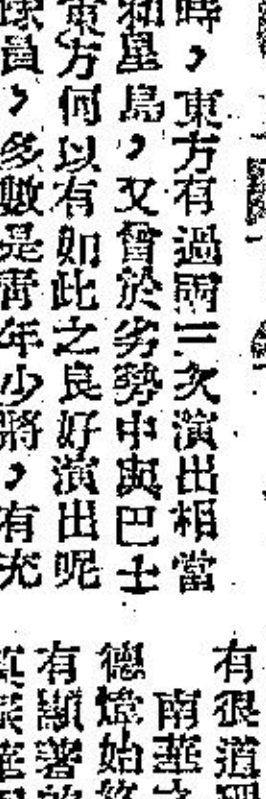 時，東方有過兩三次演出相當
和星島，又曾於劣勢中與巴士
東方何以有如此之良好演出呢
球員，多數是青年少將，有充
有很道理
南華
德煒始終
有顯著的